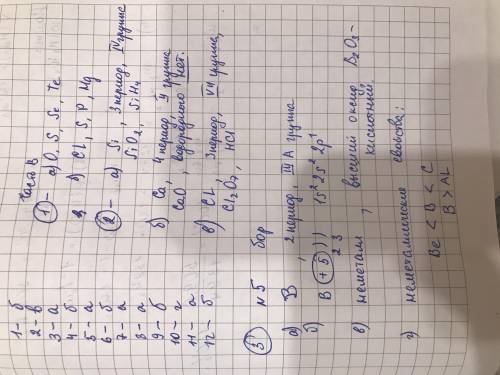 1 - б
2 - в
3 - а
4 - б
5 - а
6 - б
7 - а
8 - а
9 - б
10 - г
11 - а
12 - б
Часть В
1 - а) O, S, Se, Te
б) Cl, S, P, Mg
2 - а) Si, 3 период, IV группа
SiO₂, SiH₄
б) Ca, 4 период, II группа
CaO, водородного нет.
в) Cl, 3 период, VII группа,
Cl₂O₇, HCl
3 N5 бор
а) B, 2 период, III А группа
б) B +5 ) ) 1s² 2s² 2p¹
2 3
в) неметалл, высший оксид B₂O₃ -
кислотный.
г) неметаллические свойства:
Be < B < C
B > AL